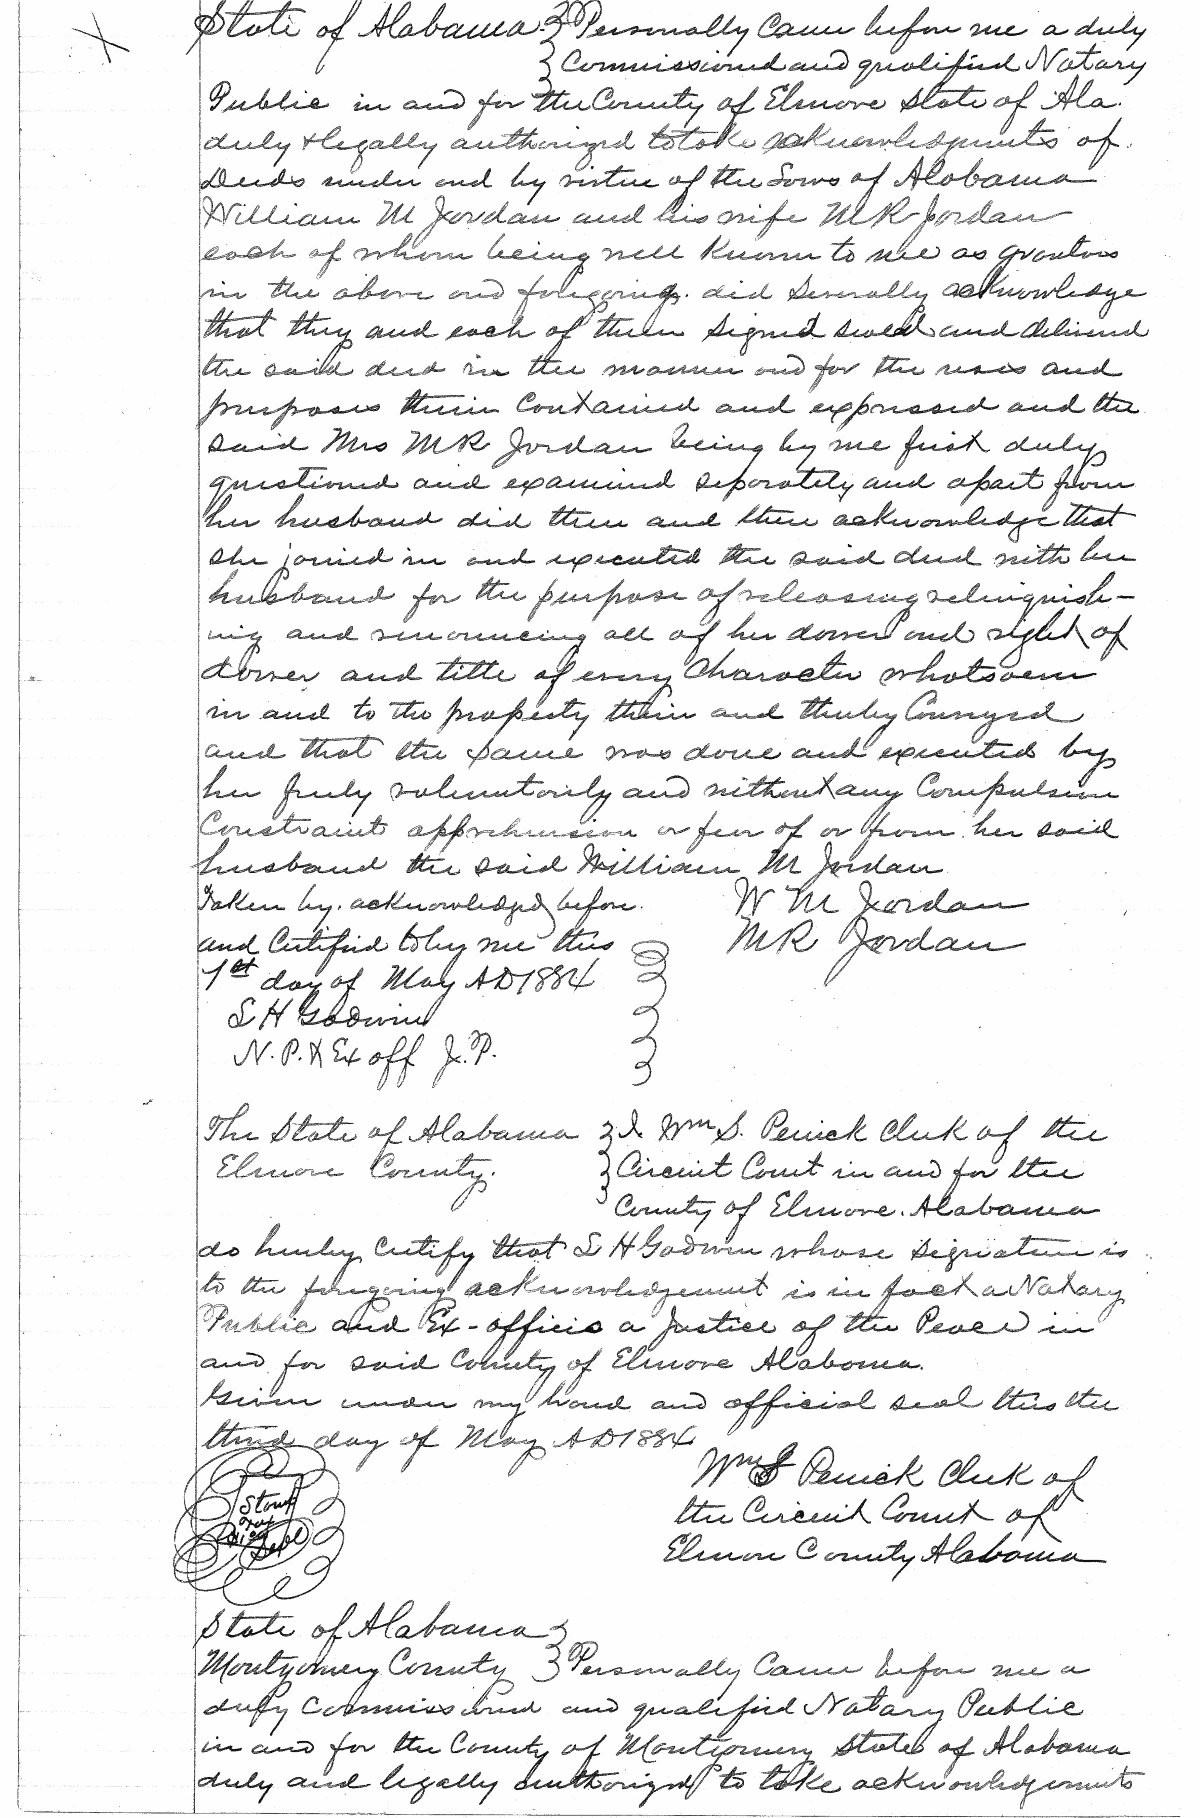 State of Alabama. } Personally Came before me a duly
} Commissioned and qualified Notary
Public in and for the County of Elmore State of Ala.
duly & legally authorized to take acknowledgments of
Deeds under and by virtue of the Laws of Alabama
William M Jordan and his wife M R Jordan
each of whom being well known to me as grantors
in the above and foregoing. did severally acknowledge
that they and each of them signed sealed and delivered
the said deed in the manner and for the uses and
purposes therein Contained and expressed and the
said Mrs M R Jordan being by me first duly
questioned and examined seperately and apart from
her husband did then and there acknowledge that
she joined in and executed the said deed with her
husband for the purpose of releasing relinquish-
ing and renouncing all of her dower and right of
dower and title of every Character whatsoever
in and to the property therein and thereby Conveyed
and that the same was done and executed by
her freely voluntarily and without any Compulsion
Constraint apprehension or fear of or from her said
husband the said William M Jordan
Taken by. acknowledged before. W M Jordan
and Certified to by me this M R Jordan
1st day of May AD 1884
S H Godwin
N. P. & Ex off J. P.
The State of Alabama } I. Wm S. Penick Clerk of the
Elmore County. } Circuit Court in and for the
County of Elmore. Alabama
do hereby Certify that S H Godwin whose signature is
to the foregoing acknowledgement is in fact a Notary
Public and Ex-officio a Justice of the Peace in
and for said County of Elmore Alabama.
Given under my hand and official seal this the
third day of May AD 1884
Wm S Penick Clerk of
the Circuit Court of
Elmore County Alabama
Seal
State of Alabama }
Montgomery County } Personally Came before me a
duly Commissioned and qualified Notary Public
in and for the County of Montgomery State of Alabama
duly and legally authorized to take acknowledgements